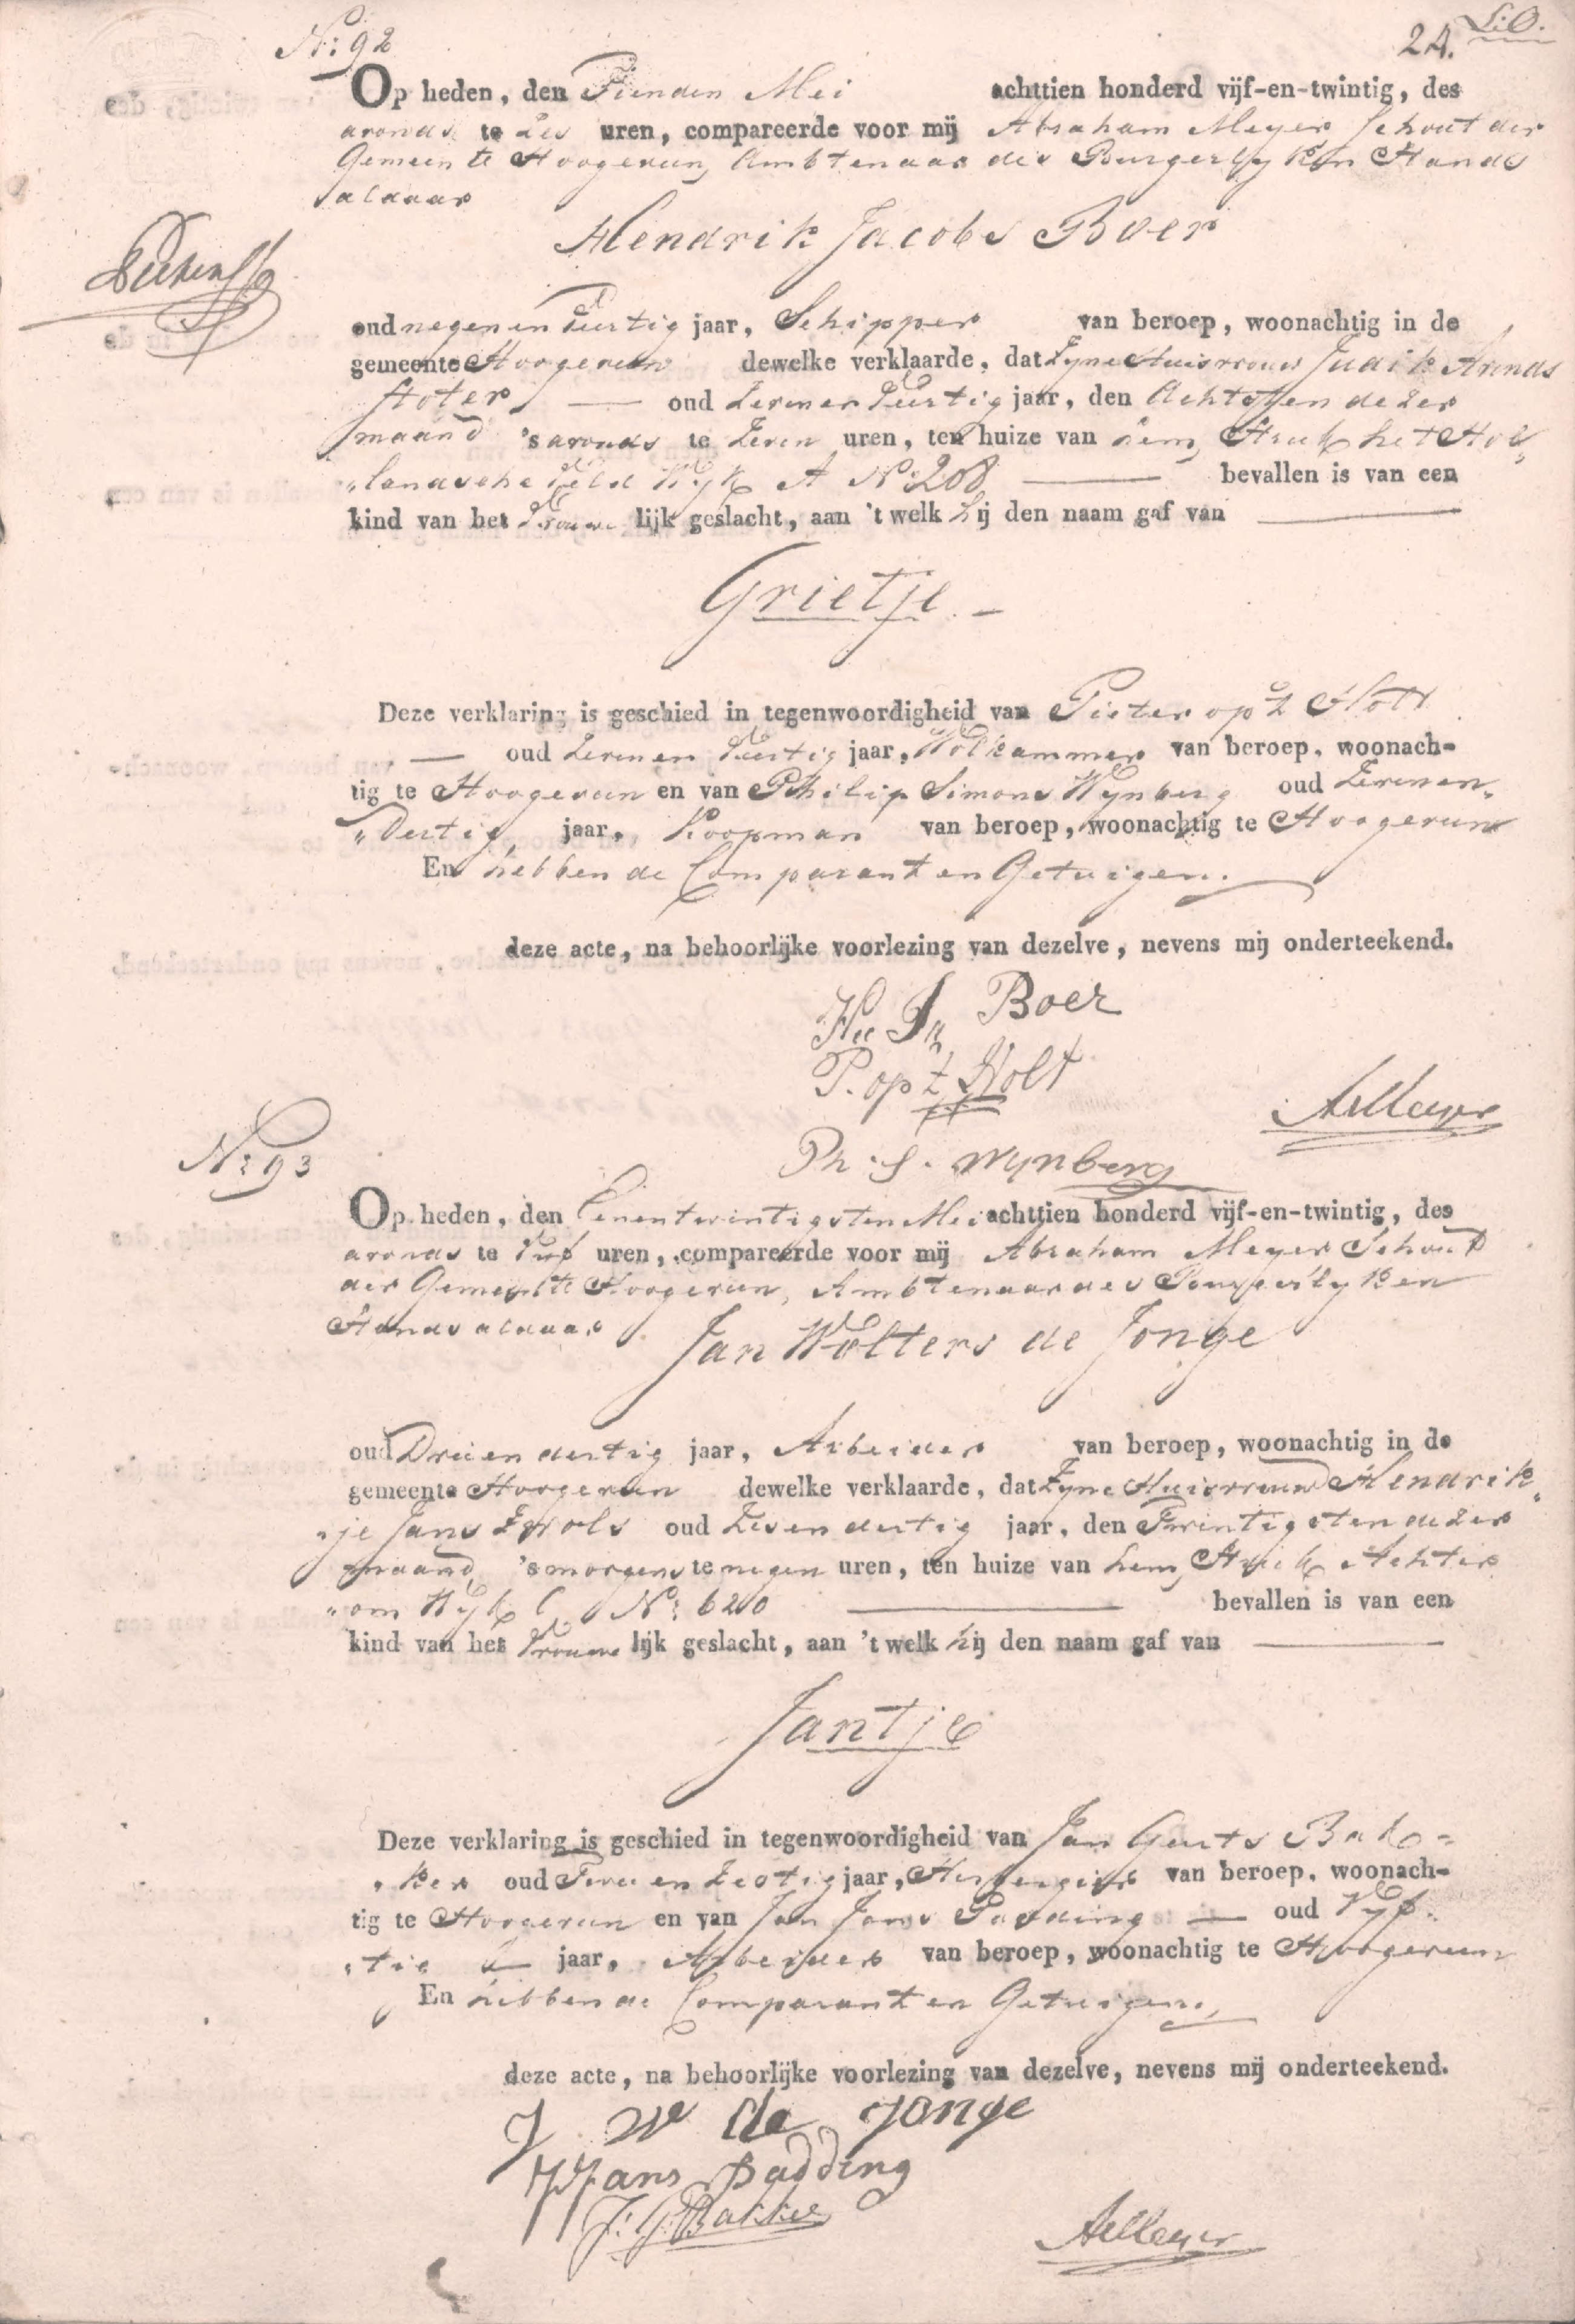 N: 92
24. L:O.
Op heden, den Tienden Mei achttien honderd vijf-en-twintig, des
avonds te Zes uren, compareerde voor mij Abraham Meyer Schout der
Gemeente Hoogeveen, Ambtenaar des Burgerlyken Stands
aldaar
Hendrik Jacobs Boer
oud negen en Veertig jaar, Schipper van beroep, woonachtig in de
gemeente Hoogeveen dewelke verklaarde, dat Zyne Huisvrouw Judik Arends
Stoter oud Zeven en Veertig jaar, den Achtsten dezer
maand 's avonds te Zeven uren, ten huize van hem, Struik het Hol„
„landsche Veld Wyk A N: 208 bevallen is van een
kind van het Vrouwe lijk geslacht, aan 't welk hij den naam gaf van
Grietje
Deze verklaring is geschied in tegenwoordigheid van Pieter op 't Holt
oud Zeven en Veertig jaar, Wolkammer van beroep, woonach-
tig te Hoogeveen en van Philip Simons Wynberg oud Zeven en„
„Dertig jaar, Koopman van beroep, woonachtig te Hoogeveen
En hebben de Comparant en Getuigen.
deze acte, na behoorlijke voorlezing van dezelve, nevens mij onderteekend.
Boer
P. op 't Holt
AMeyer
Ph. S. Wynberg
N: 93
Op heden, den Eenentwintigsten Mei achttien honderd vijf-en-twintig, des
avonds te Vyf uren, compareerde voor mij Abraham Meyer Schout
der Gemeente Hoogeveen, Ambtenaar des Burgerlyken
Stands aldaar
Jan Wolters de Jonge
oud Drie en dertig jaar, Arbeider van beroep, woonachtig in de
gemeente Hoogeveen dewelke verklaarde, dat Zyne Huisvrouw Hendrik„
„je Jans Zwols oud Zes en dertig jaar, den Twintigsten dezer
maand 's morgens te negen uren, ten huize van hem, Struik Achter
„om Wyk C N: 620 bevallen is van een
kind van het Vrouwe lijk geslacht, aan 't welk hij den naam gaf van
Jantje
Deze verklaring is geschied in tegenwoordigheid van Jan Geerts Bak-
„ker oud Twee en Zestig jaar, Herbergier van beroep, woonach-
tig te Hoogeveen en van Jan Jans Padding oud Vyf„
„tig jaar, Arbeider van beroep, woonachtig te Hoogeveen
En hebben de Comparant en Getuigen,
deze acte, na behoorlijke voorlezing van dezelve, nevens mij onderteekend.
J W de Jonge
Jans Padding
J: G: Bakker
AMeyer